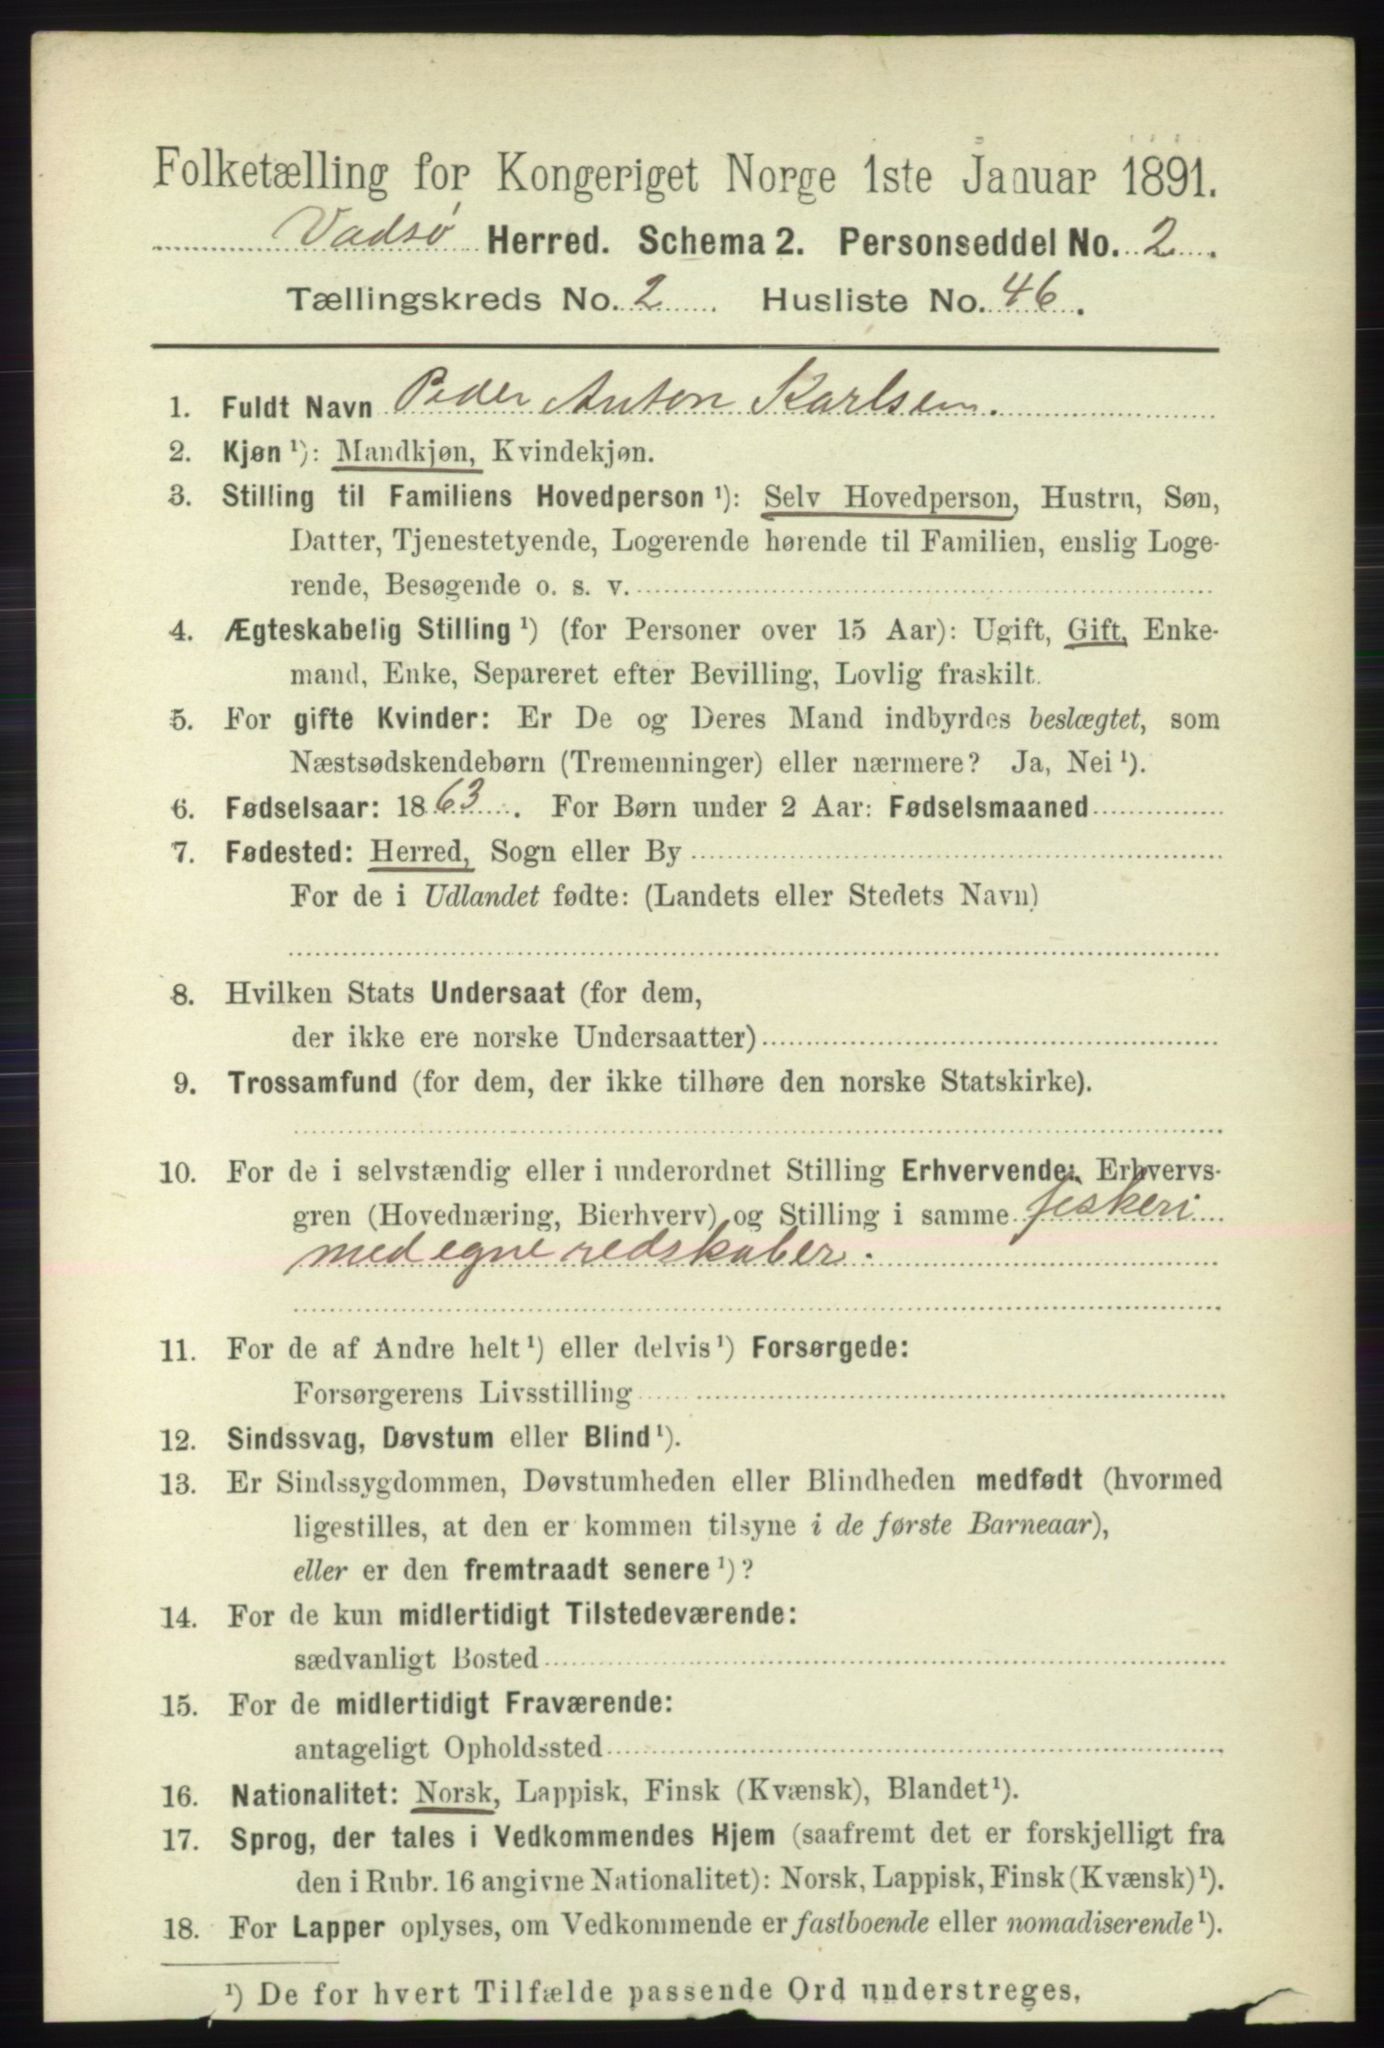 Folketælling for Kongeriget Norge 1ste Januar 1891.
Vadsø Herred. Schema 2. Personseddel No. 2.
Tællingskreds No. 2 Husliste No. 46.
1. Fuldt Navn Peder Anton Karlsen.
2. Kjøn ¹): Mandkjøn, Kvindekjøn.
3. Stilling til Familiens Hovedperson ¹): Selv Hovedperson, Hustru, Søn,
Datter, Tjenestetyende, Logerende hørende til Familien, enslig Loge-
rende, Besøgende o. s. v.
4. Ægteskabelig Stilling ¹) (for Personer over 15 Aar): Ugift, Gift, Enke-
mand, Enke, Separeret efter Bevilling, Lovlig fraskilt.
5. For gifte Kvinder: Er De og Deres Mand indbyrdes beslægtet, som
Næstsødskendebørn (Tremenninger) eller nærmere? Ja, Nei ¹).
6. Fødselsaar: 1863. For Børn under 2 Aar: Fødselsmaaned
7. Fødested: Herred, Sogn eller By
For de i Udlandet fødte: (Landets eller Stedets Navn)
8. Hvilken Stats Undersaat (for dem,
der ikke ere norske Undersaatter)
9. Trossamfund (for dem, der ikke tilhøre den norske Statskirke).
10. For de i selvstændig eller i underordnet Stilling Erhvervende: Erhvervs-
gren (Hovednæring, Bierhverv) og Stilling i samme fiskeri
med egne redskaber.
11. For de af Andre helt ¹) eller delvis ¹) Forsørgede:
Forsørgerens Livsstilling
12. Sindssvag, Døvstum eller Blind ¹).
13. Er Sindssygdommen, Døvstumheden eller Blindheden medfødt (hvormed
ligestilles, at den er kommen tilsyne i de første Barneaar),
eller er den fremtraadt senere ¹)?
14. For de kun midlertidigt Tilstedeværende:
sædvanligt Bosted
15. For de midlertidigt Fraværende:
antageligt Opholdssted
16. Nationalitet: Norsk, Lappisk, Finsk (Kvænsk), Blandet ¹).
17. Sprog, der tales i Vedkommendes Hjem (saafremt det er forskjelligt fra
den i Rubr. 16 angivne Nationalitet): Norsk, Lappisk, Finsk (Kvænsk) ¹).
18. For Lapper oplyses, om Vedkommende er fastboende eller nomadiserende ¹).
¹) De for hvert Tilfælde passende Ord understreges.